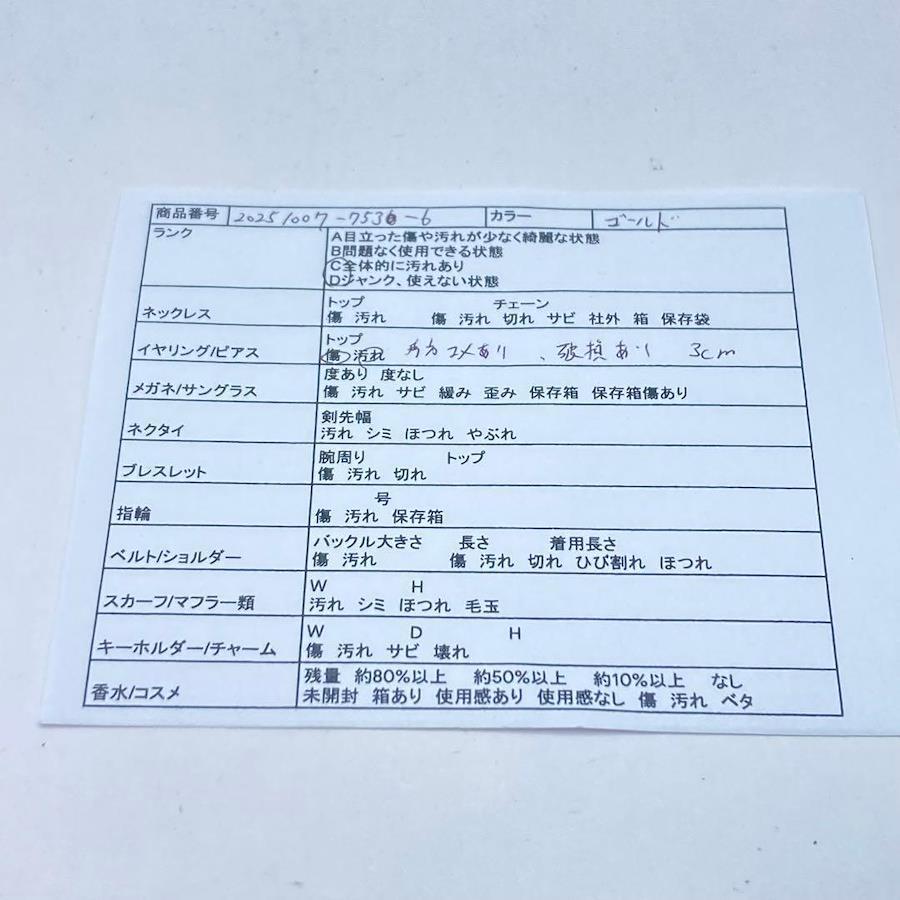 商品番号 20251007-7536-6 カラー ゴールド
ランク
A目立った傷や汚れが少なく綺麗な状態
B問題なく使用できる状態
C全体的に汚れあり
Dジャンク、使えない状態
ネックレス
トップ チェーン
傷 汚れ 傷 汚れ 切れ サビ 社外 箱 保存袋
イヤリング/ピアス
トップ
傷 汚れ あり 、破損あり 3cm
メガネ/サングラス
度あり 度なし
傷 汚れ サビ 緩み 歪み 保存箱 保存箱傷あり
ネクタイ
剣先幅
汚れ シミ ほつれ やぶれ
ブレスレット
腕周り トップ
傷 汚れ 切れ
指輪
号
傷 汚れ 保存箱
ベルト/ショルダー
バックル大きさ 長さ 着用長さ
傷 汚れ 傷 汚れ 切れ ひび割れ ほつれ
スカーフ/マフラー類
W H
汚れ シミ ほつれ 毛玉
キーホルダー/チャーム
W D H
傷 汚れ サビ 壊れ
香水/コスメ
残量 約80%以上 約50%以上 約10%以上 なし
未開封 箱あり 使用感あり 使用感なし 傷 汚れ ベタ